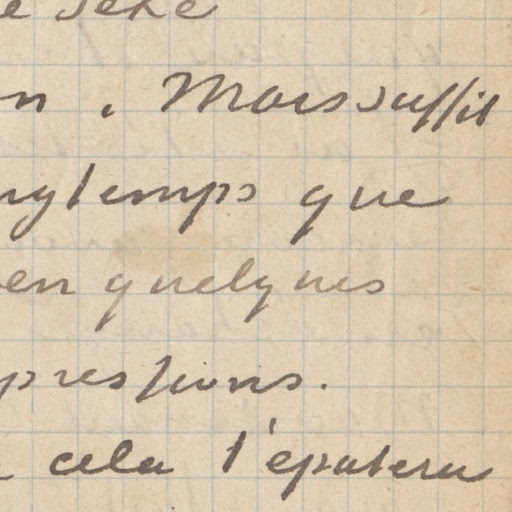 n. Mais suffit
ngtemps que
en quelques
pressions.
cela t'épatera